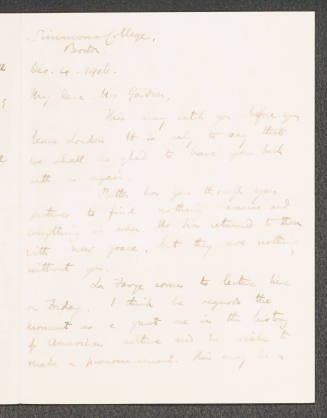 Simmons College,
Boston
Dec. 4. 1906.
My dear Mrs Gardner,
This may catch you before you
leave London. It is only to say that
we shall be glad to have you back
with us again.
Potter has gone through your
pictures to find nothing and
everything in order. He has returned to them
with new grace, but they are nothing
without you.
La Farge comes to lecture here
on Friday. I think he regards the
moment as a great one in the history
of American culture and he wishes to
make a pronouncement. This may be a